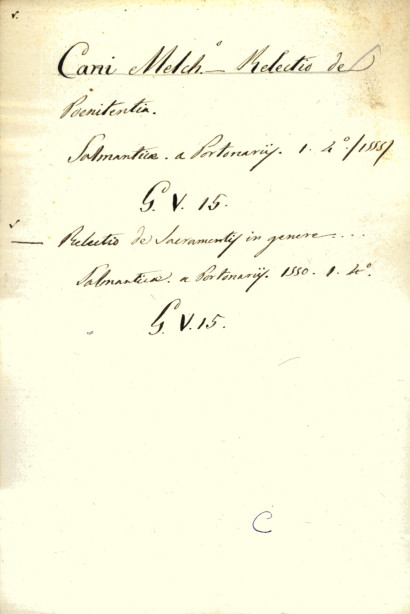 v.
Cani Melch.º — Relectio de
Pœnitentia.
Salmanticæ. a Portonarijs. 1. 4º. /1555/
G. V. 15.
v
— Relectio de Sacramentis in genere....
Salmanticæ. a Portonarijs. 1550. 1. 4º.
G. V. 15.
C